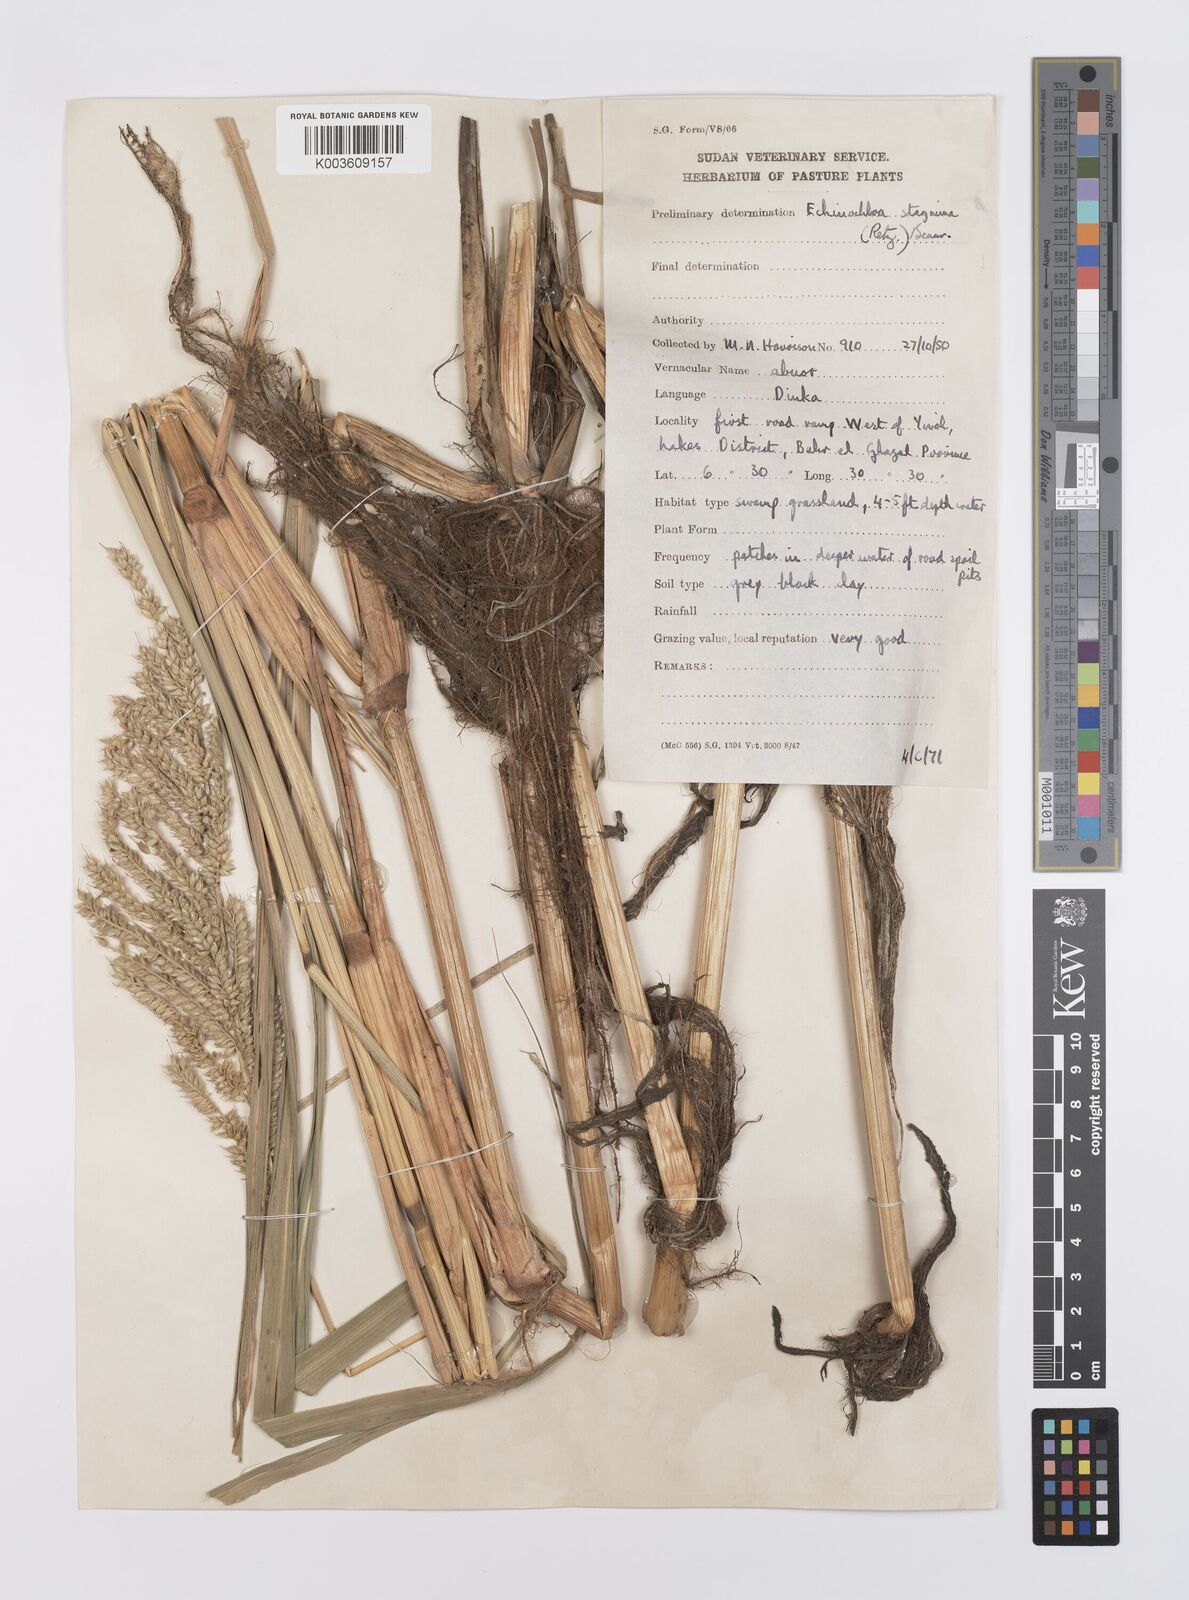 ROYAL BOTANIC GARDENS KEW
K003609157
S.G. Form/VS/66
SUDAN VETERINARY SERVICE.
HERBARIUM OF PASTURE PLANTS
Preliminary determination Echinochloa stagnina
(Retz.) Beauv.
Final determination
Authority
Collected by M. N. Harrison No. 910 27/10/50
Vernacular Name abuor
Language Dinka
Locality first road ramp West of Yirol,
Lakes District, Bahr el Ghazal Province
Lat. 6 ° 30 " Long. 30 ° 30 "
Habitat type swamp grassland, 4-5 ft depth water
Plant Form
Frequency patches in deeper water of road spoil
pits
Soil type grey black clay
Rainfall
Grazing value, local reputation very good
REMARKS:
(McC 556) S.G. 1394 Vet. 3000 8/47
Don Williams
M001011
centimeters
Kew
Royal Botanic Gardens
0 1 2 3 4 5 6 7 8 9 10
cm
copyright reserved